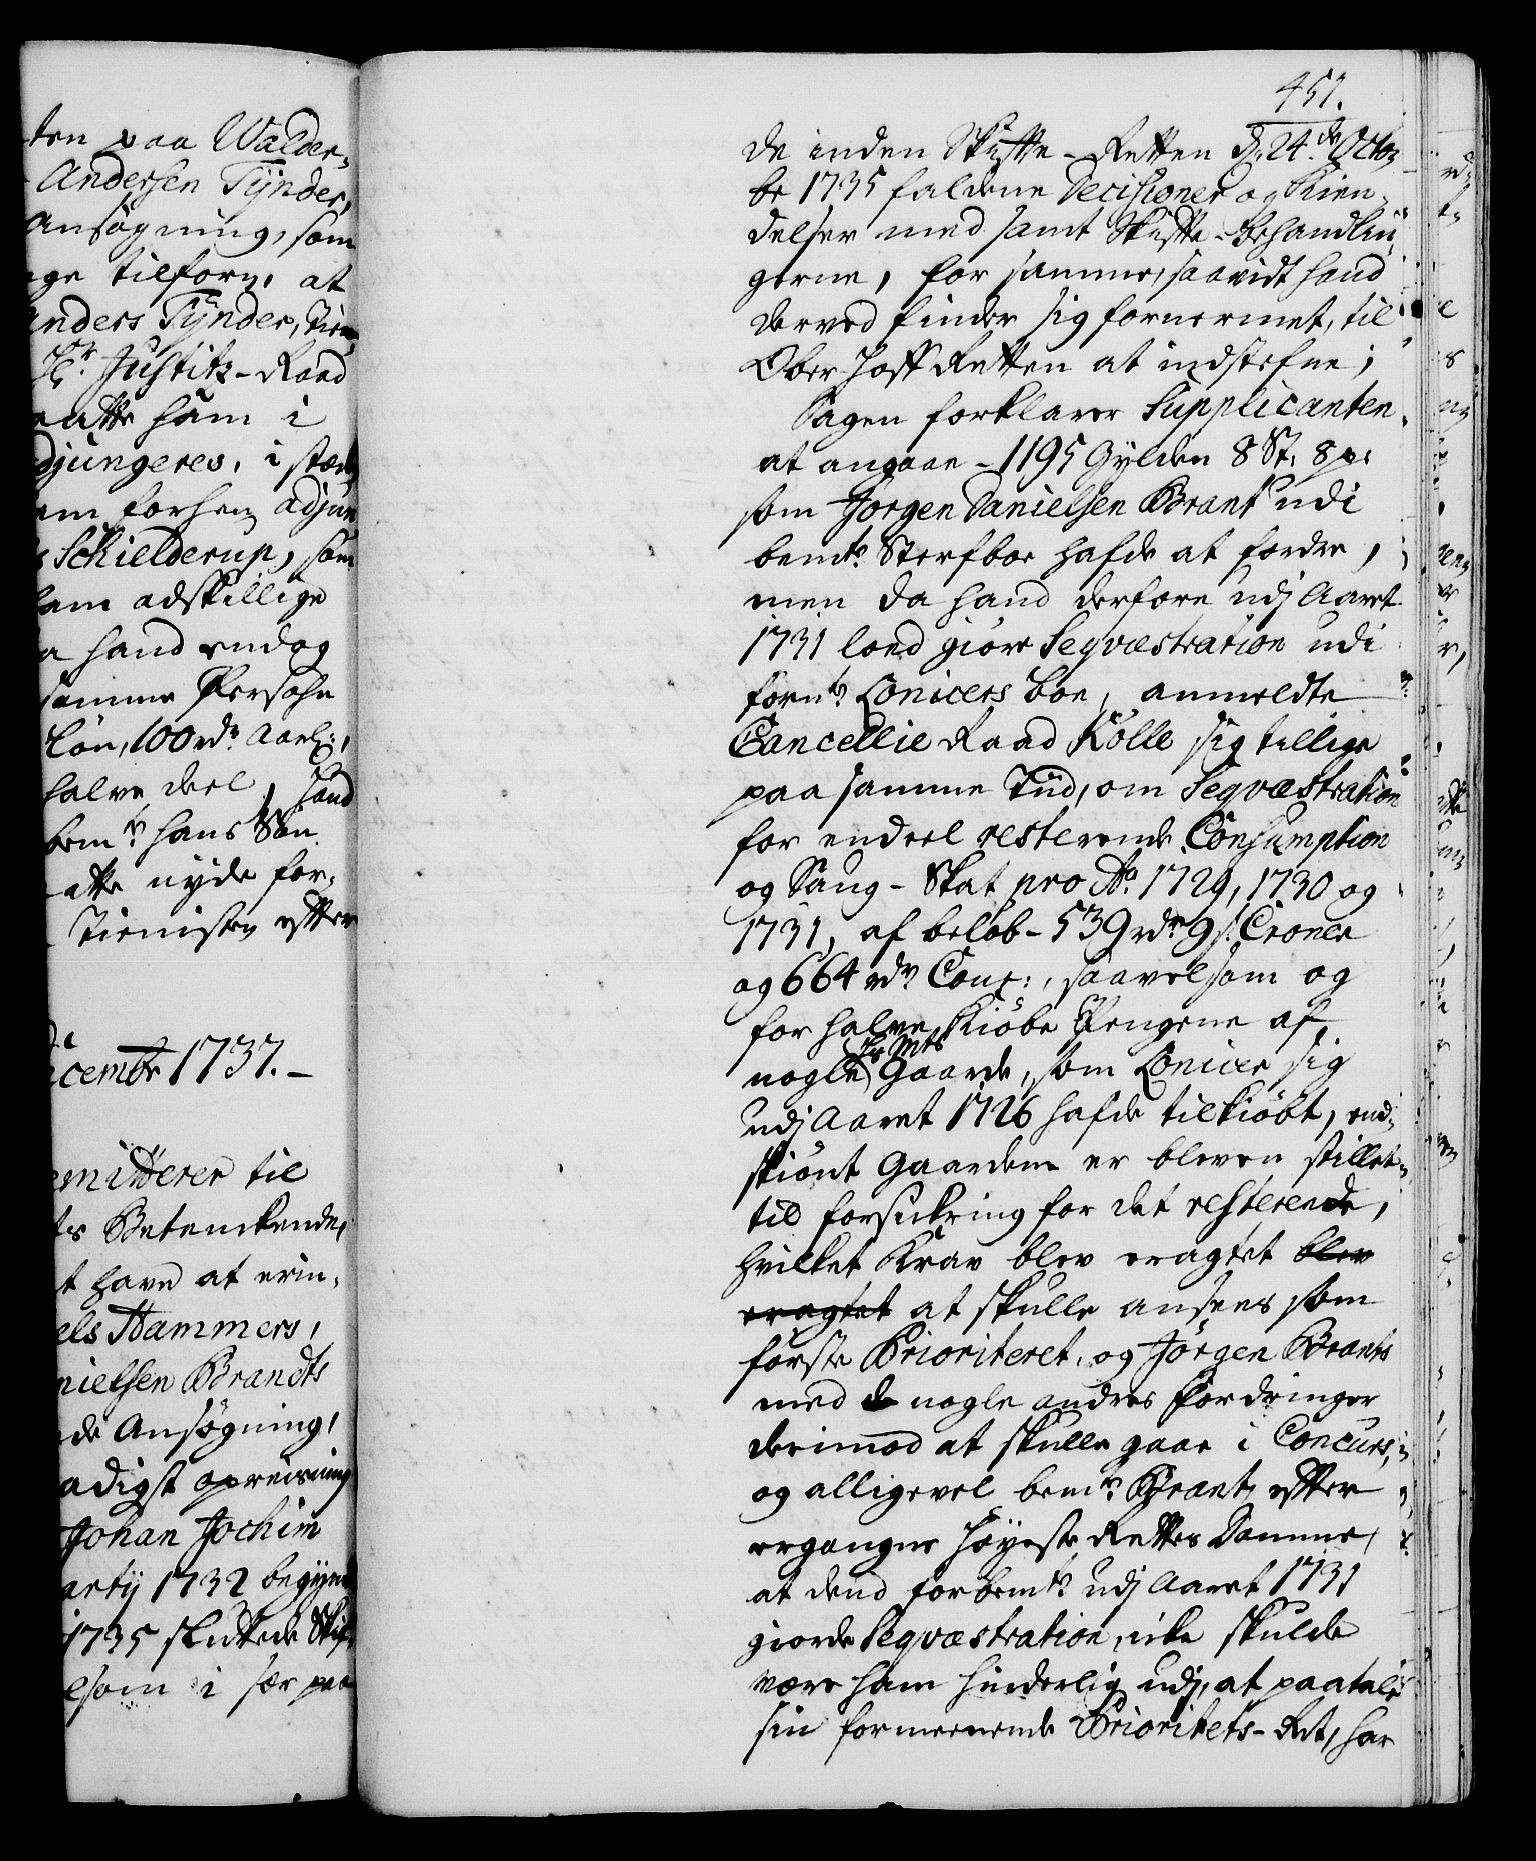 ten paa Walder-
Andersen Tÿnder,
Ansøgning, som
ge tilforn, at
Anders Tÿnder, Tien
Hr. Justitz-Raad
ham i
djungeres, i stæd
em forhen adjun
Schielderup, som
ham adskillige
a hand endog
samme Persohn
løn, 100 rdr. Aarl:,
halve deel, hand
bemte. hans Søn
atte nÿde for-
Tienisten efter
Decembr 1737.-
emitterer til
ts Betenckende,
t have at erin-
els Hammers,
nielsen Brandts
de Ansøgning,
adigst opreisning
Johan Jochim
artij 1732 begÿn
1735 sluttede Skif-
elsom i sær paa
451.
de inden Skifte-Retten d. 24de Octo-
br 1735 faldene Decisioner og Kien-
delser med samt Skifte-Behandlin-
gerne, for samme, saavidt hand
derved finder sig fornermet, til
Ober Hoff Retten at indstefne;
Sagen forklarer Supplicanten
at angaae - 1195 Gylden 8 St. 8 p:
som Jørgen Danielsen Brant udi
bemte. Sterfboe hafde at fordre,
men da hand derfore udj Aaret
1731 loed giøre Seqvæstration udi
fornte. Lonicers boe, anmeldte
Cancellie Raad Kølle sig tillige
paa samme Tiid, om Seqvæstration
for endeel resterende Consumption
og Saug-Skat pro Ao. 1729, 1730 og
1731, af beløb - 539 rdr 9 s. Croner
og 664 rdr Cour:, saavelsom og
for halve Kiøbe Pengene af
nogle Hs Mts Gaarde, som Lonicer sig
udj Aaret 1726 hafde tilkiøbt, end-
skiønt Gaardene er bleven stillet
til forsikring for det resterende,
hvilket Krav blev eragtet blev
eragtet at skulle ansees som
første Prioriteret, og Jørgen Brants
med de nogle andres Fordringer
derimod at skulle gaae i Concurs,
og alligevel bemte. Brant efter
ergangne Høyeste Rettes Domme,
at dend forbemte. udj Aaret 1731
giorde Seqvæstration, icke skulde
være ham hinderlig udj, at paatale
sin formeenende Prioritets-Ret, har